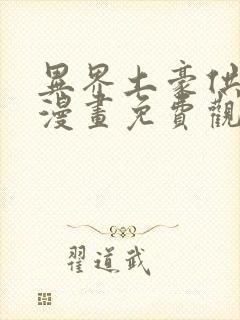 異界土豪供
漫畫免費觀
翟道武